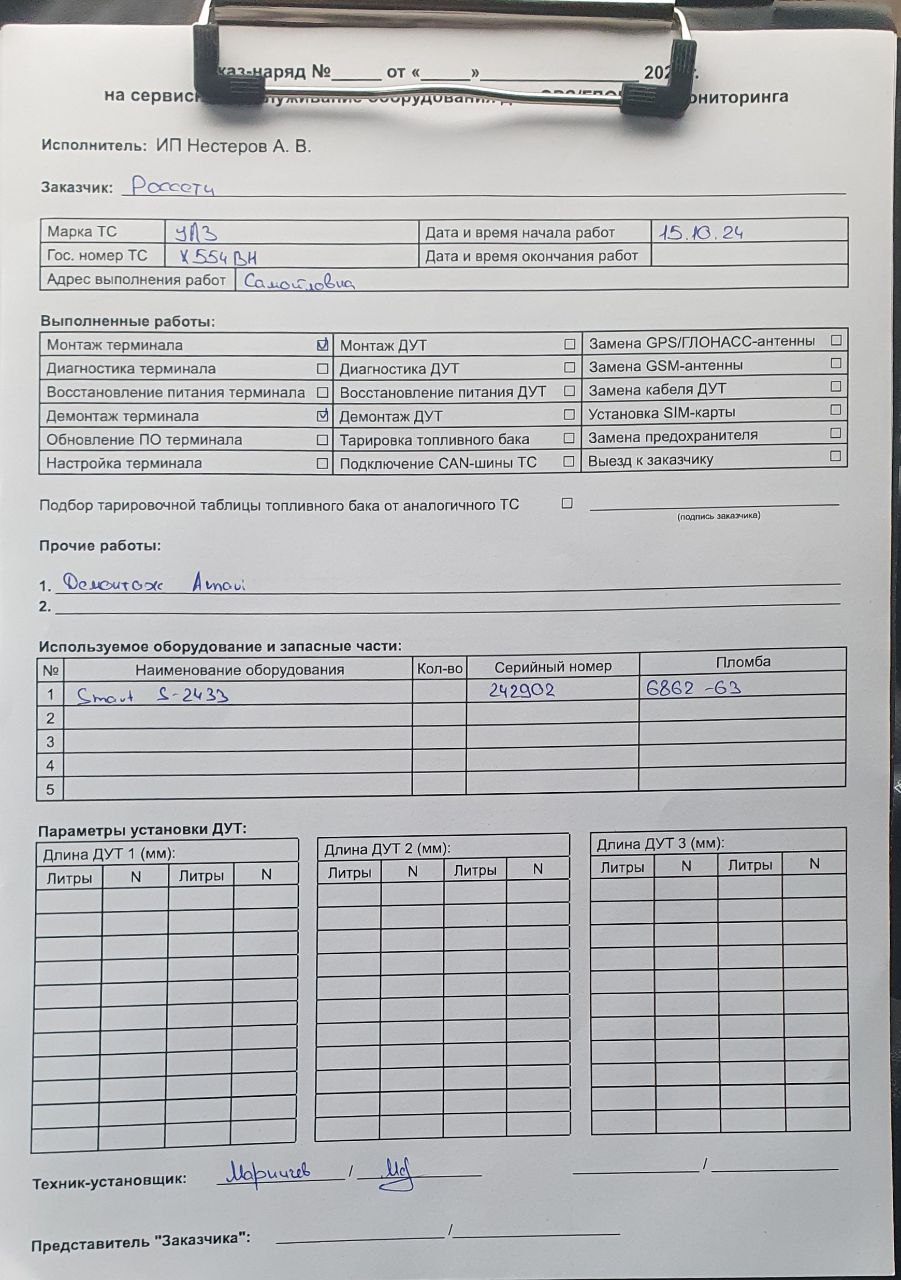 каз-наряд №_____ от «_____»_________________ 202 г.
на сервис служивание оборудования д GPS/ГЛО ониторинга
Исполнитель: ИП Нестеров А. В.
Заказчик: Россети
Марка ТС УАЗ Дата и время начала работ 15.10.24
Гос. номер ТС Х554ВН Дата и время окончания работ
Адрес выполнения работ Самойловка
Выполненные работы:
Монтаж терминала ☑ Монтаж ДУТ ☐ Замена GPS/ГЛОНАСС-антенны ☐
Диагностика терминала ☐ Диагностика ДУТ ☐ Замена GSM-антенны ☐
Восстановление питания терминала ☐ Восстановление питания ДУТ ☐ Замена кабеля ДУТ ☐
Демонтаж терминала ☑ Демонтаж ДУТ ☐ Установка SIM-карты ☐
Обновление ПО терминала ☐ Тарировка топливного бака ☐ Замена предохранителя ☐
Настройка терминала ☐ Подключение CAN-шины ТС ☐ Выезд к заказчику ☐
Подбор тарировочной таблицы топливного бака от аналогичного ТС ☐
(подпись заказчика)
Прочие работы:
1. Демонтаж
2.
Используемое оборудование и запасные части:
№ Наименование оборудования Кол-во Серийный номер Пломба
1 Smart S-2433 242902 6862-63
2
3
4
5
Параметры установки ДУТ:
Длина ДУТ 1 (мм): Длина ДУТ 2 (мм): Длина ДУТ 3 (мм):
Литры N Литры N Литры N Литры N Литры N Литры N
Техник-установщик: Маричев / /
Представитель "Заказчика": /